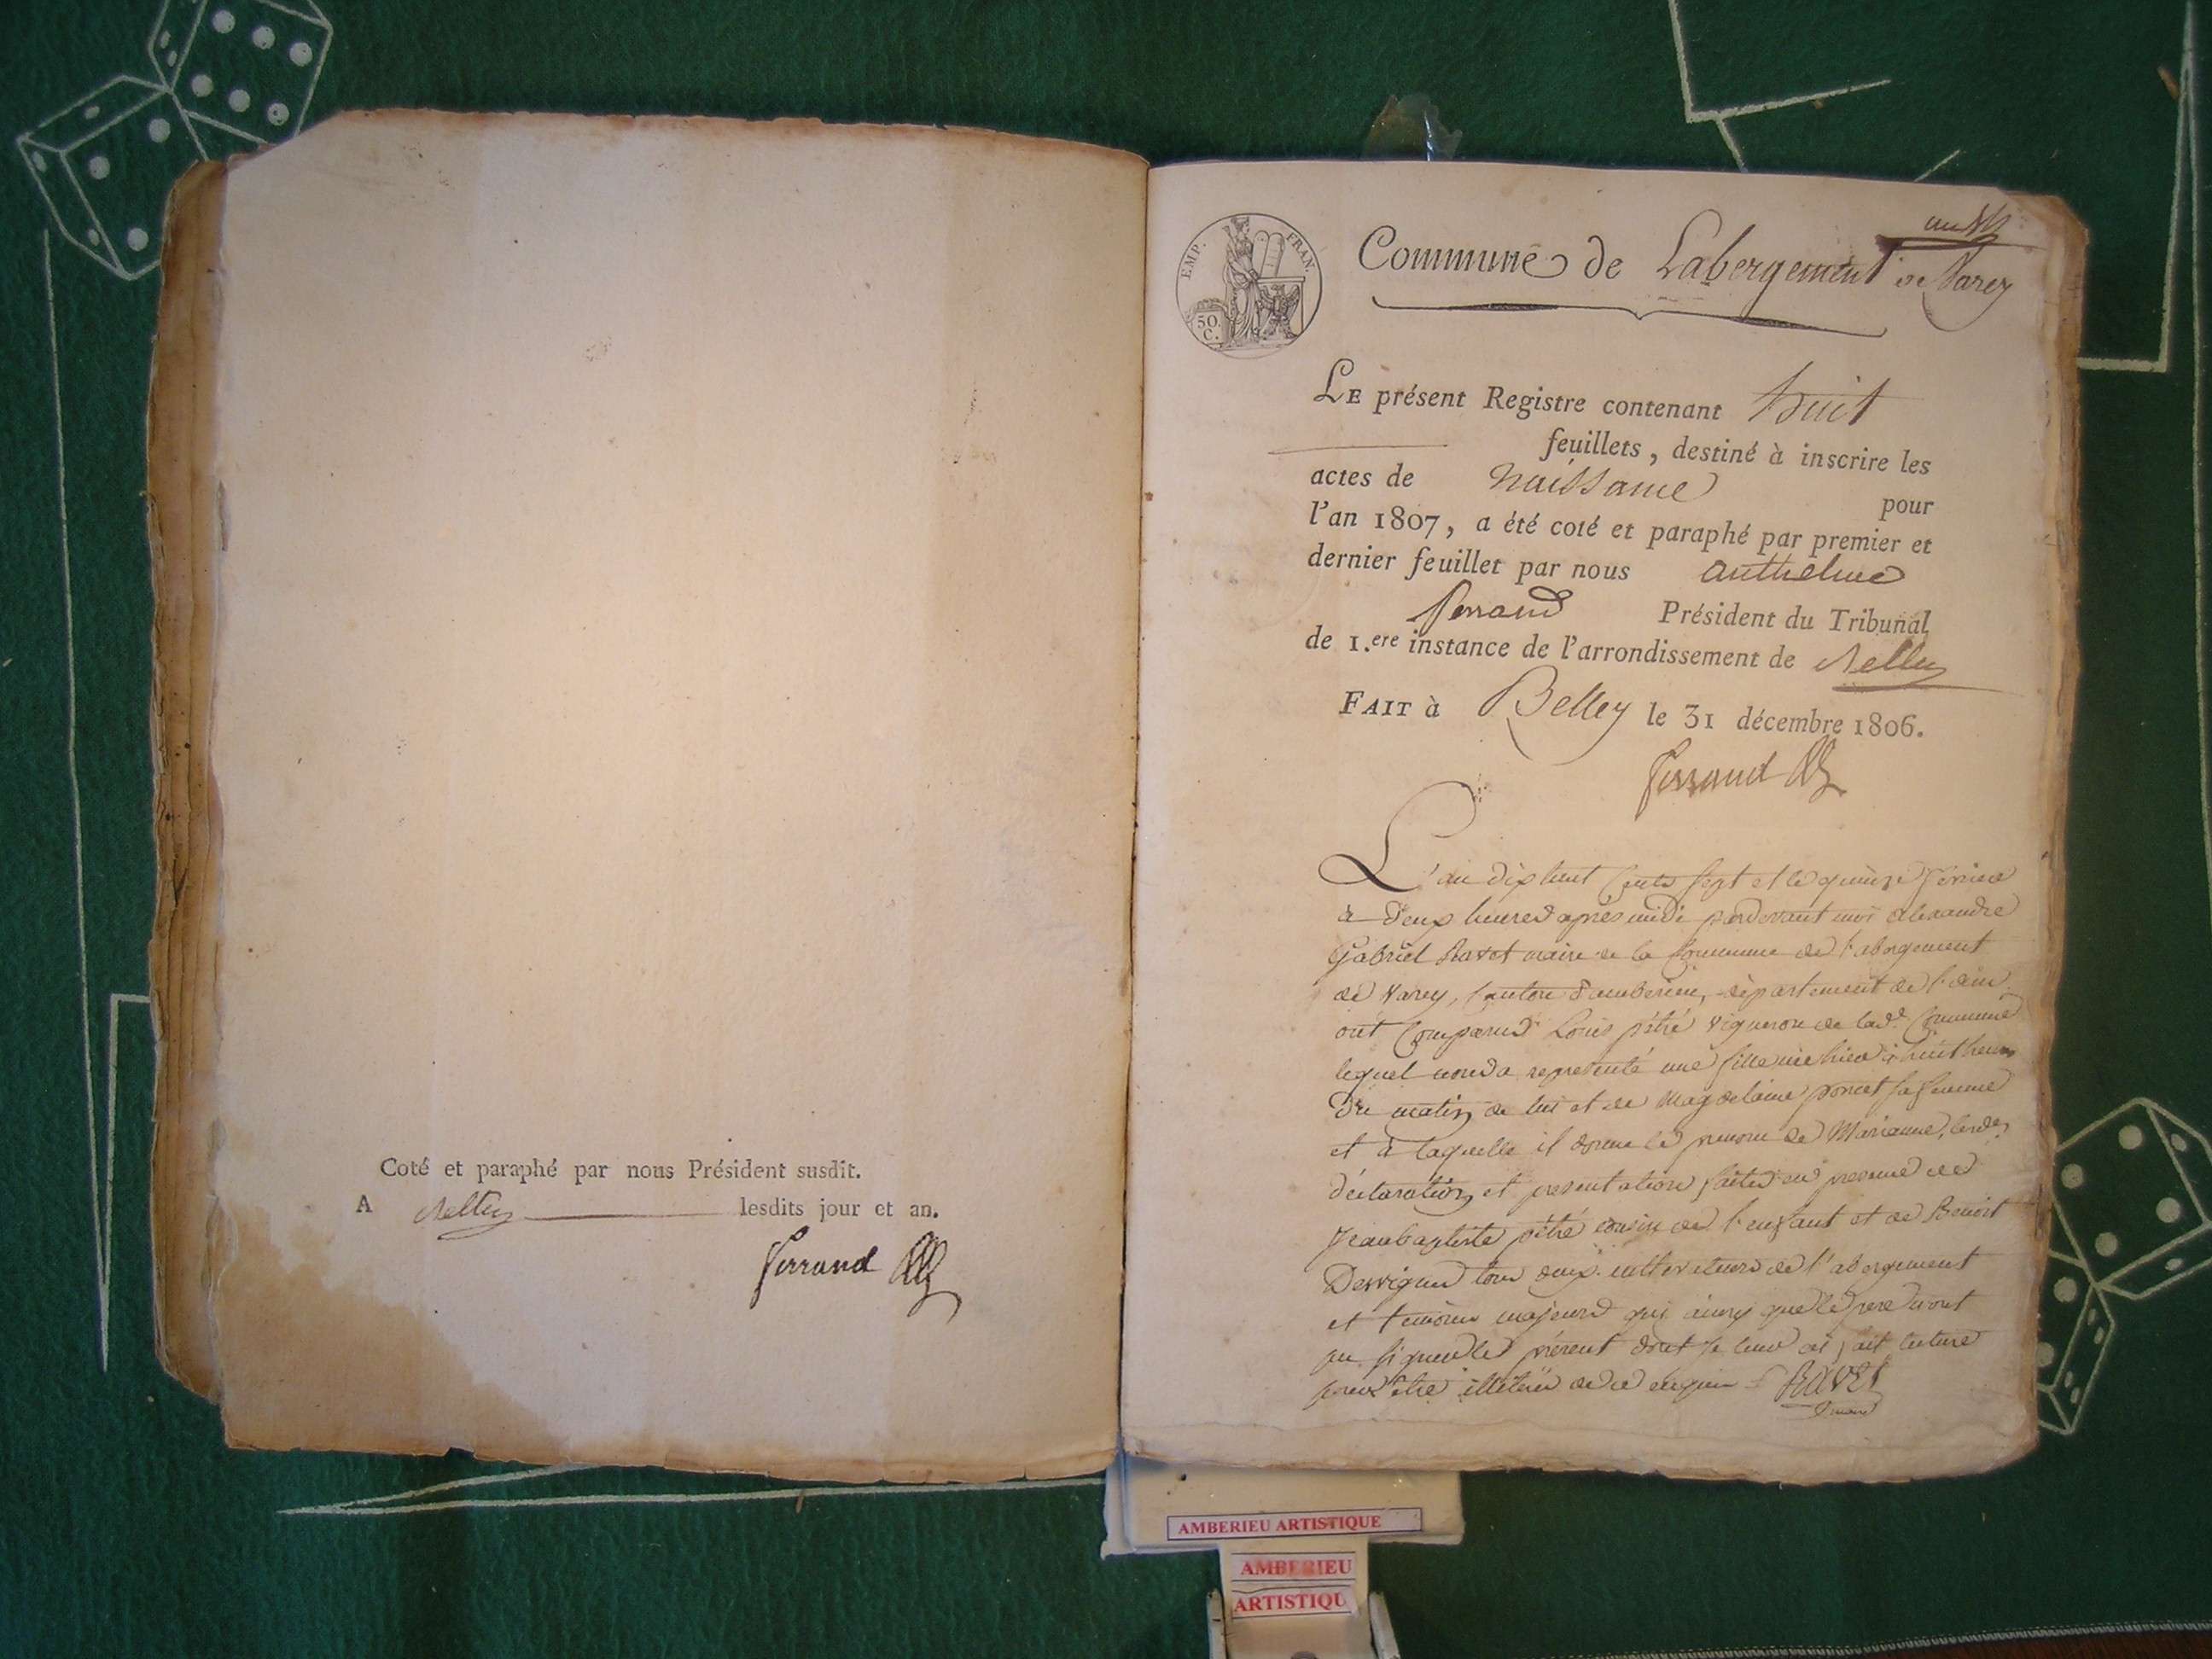 Coté et paraphé par nous Président susdit.
A Belley lesdits jour et an.
Ferrand
EMP. FRAN.
50.
C.
Commune de Labergement de Varey
LE présent Registre contenant huit
feuillets, destiné à inscrire les
actes de Naissance pour
l'an 1807, a été coté et paraphé par premier et
dernier feuillet par nous anthelme
ferrand Président du Tribunal
de 1.ere instance de l'arrondissement de Belley
FAIT à Belley le 31 décembre 1806.
Ferrand
L'an dix huit cents sept et le quinze
à deux heures après midi pardevant moi alexandre
Gabriel Ravet maire de la Commune de l'abergement
de Varey, Canton d'amberieu, département de l'ain
ont Comparus Louis pétré vigneron de lad.e Commune
lequel nous a representé une fille née hier à huit heures
du matin de lui et de Magdelaine poncet sa femme
et à laquelle il donne le prenom de Marianne, lesdes
déclaration et presentation faites en presence de
Jeanbaptiste pétré cousin de l'enfant et de Benoit
Dervigne tous deux cultivateurs de l'abergement
et temoins majeurs qui ainsy que le pere n'ont
pu signer le présent dont je leur ai fait lecture
pour être illiterés de ce enquis RAVET
maire
AMBERIEU ARTISTIQUE
AMBERIEU
ARTISTIQU